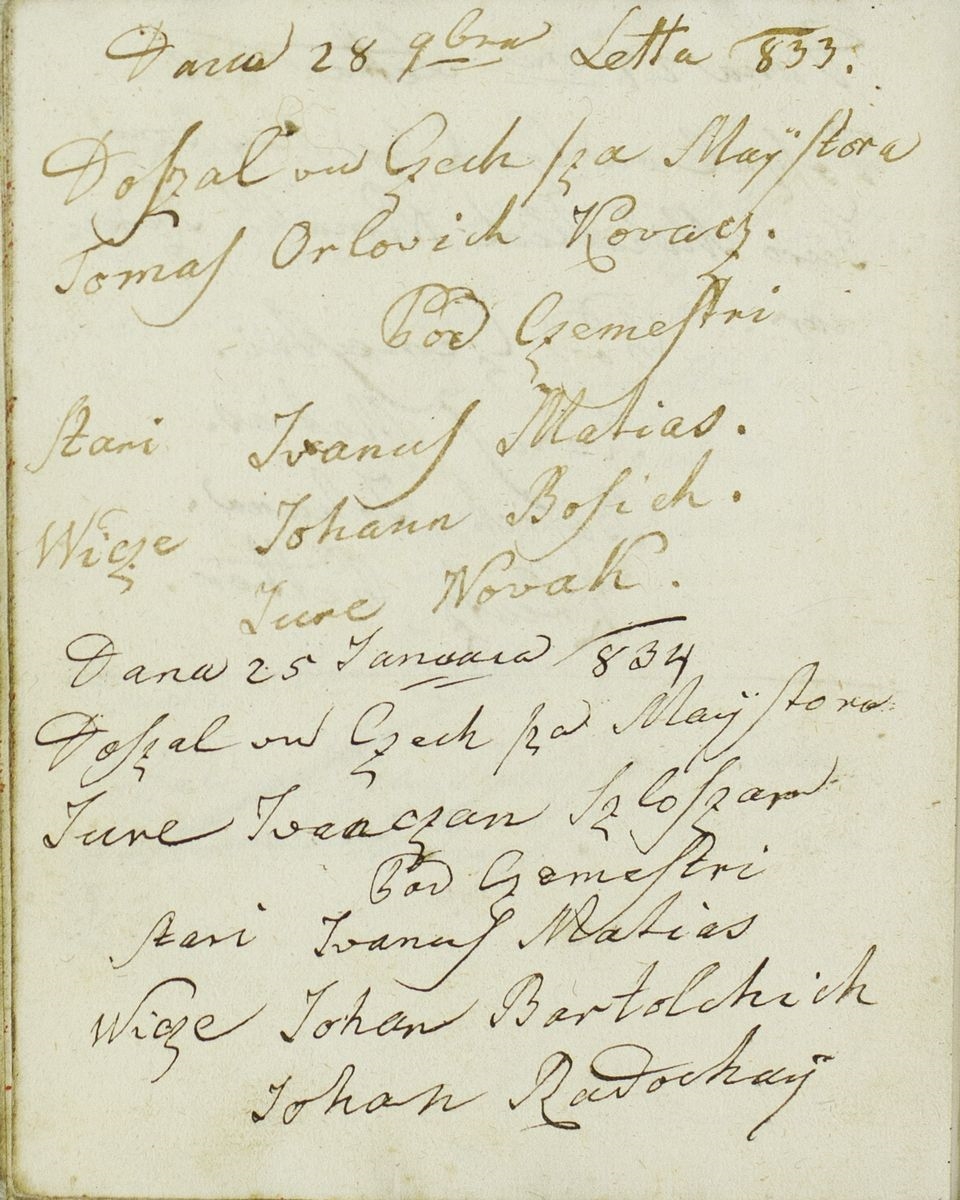 Dana 28 9bra Letta 833.
Doſzal vu Czech ſza Maÿſtora
Tomaſ Orlovich Kovacz.
Pod Czemeſtri
Stari Ivanuſ Matias.
Wicze Johann Boſich.
Jure Novak.
Dana 25 Januara 834
Doſzal vu Czech ſza Maÿſtora
Jure Ivanczan Szloſzara
Pod Czemeſtri
Stari Ivanuſ Matias
Wicze Johan Bartolchich
Johan Radochaÿ